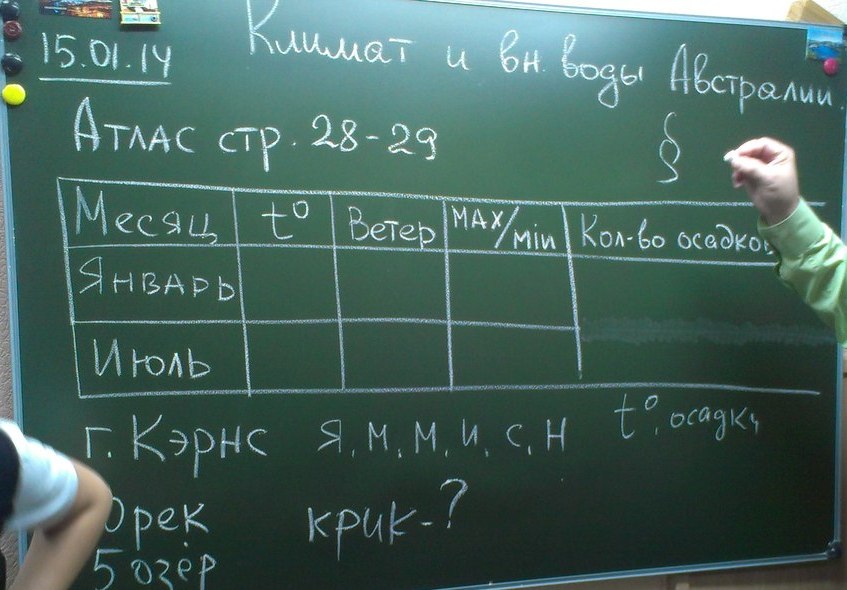 15.01.14 Климат и вн. воды Австралии
Атлас стр. 28-29 §
Месяц t° Ветер MAX/min Кол-во осадков
Январь
Июль
г. Кэрнс Я, М, М, И, С, Н t°, осадки
рек крик-?
5 озёр